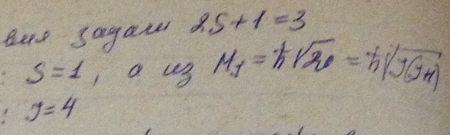 вия задачи 2S+1=3
: S=1, а из M_J = ħ√20 = ħ√J(J+1)
: J=4